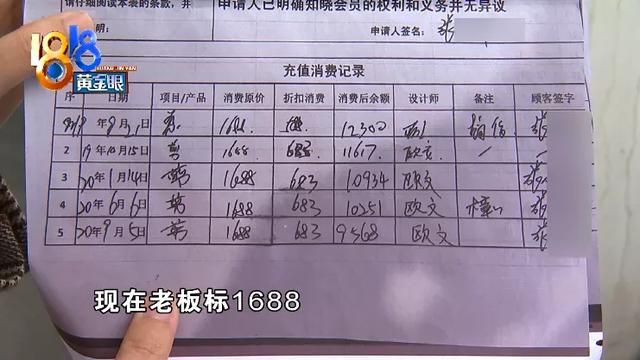 请仔细阅读本表的条款，并
申请人已明确知晓会员的权利和义务并无异议
明：
申请人签名：张
1818
黄金眼
充值消费记录
序 日期 项目/产品 消费原价 折扣消费 消费后余额 设计师 备注 顾客签字
年9月 日 12300 张
2 19年10月15日 剪 1688 683 11617 欧文 /
3 20年1月14日 剪 1688 683 10934 欧文 张
4 20年6月6日 剪 1688 683 10251 欧文 张
5 20年9月5日 剪 1688 683 9568 欧文 张
现在老板标1688